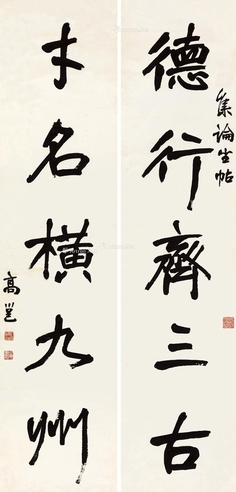 集論坐帖
德行齊三古
才名橫九州
高邕